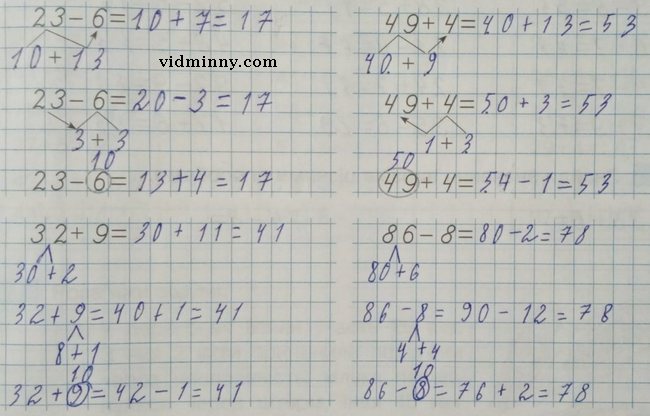 23-6=10+7=17
10+13
vidminny.com
23-6=20-3=17
3+3
10
23-6=13+4=17
49+4=40+13=53
40+9
49+4=50+3=53
1+3
50
49+4=54-1=53
32+9=30+11=41
30+2
32+9=40+1=41
8+1
10
32+9=42-1=41
86-8=80-2=78
80+6
86-8=90-12=78
4+4
10
86-8=76+2=78